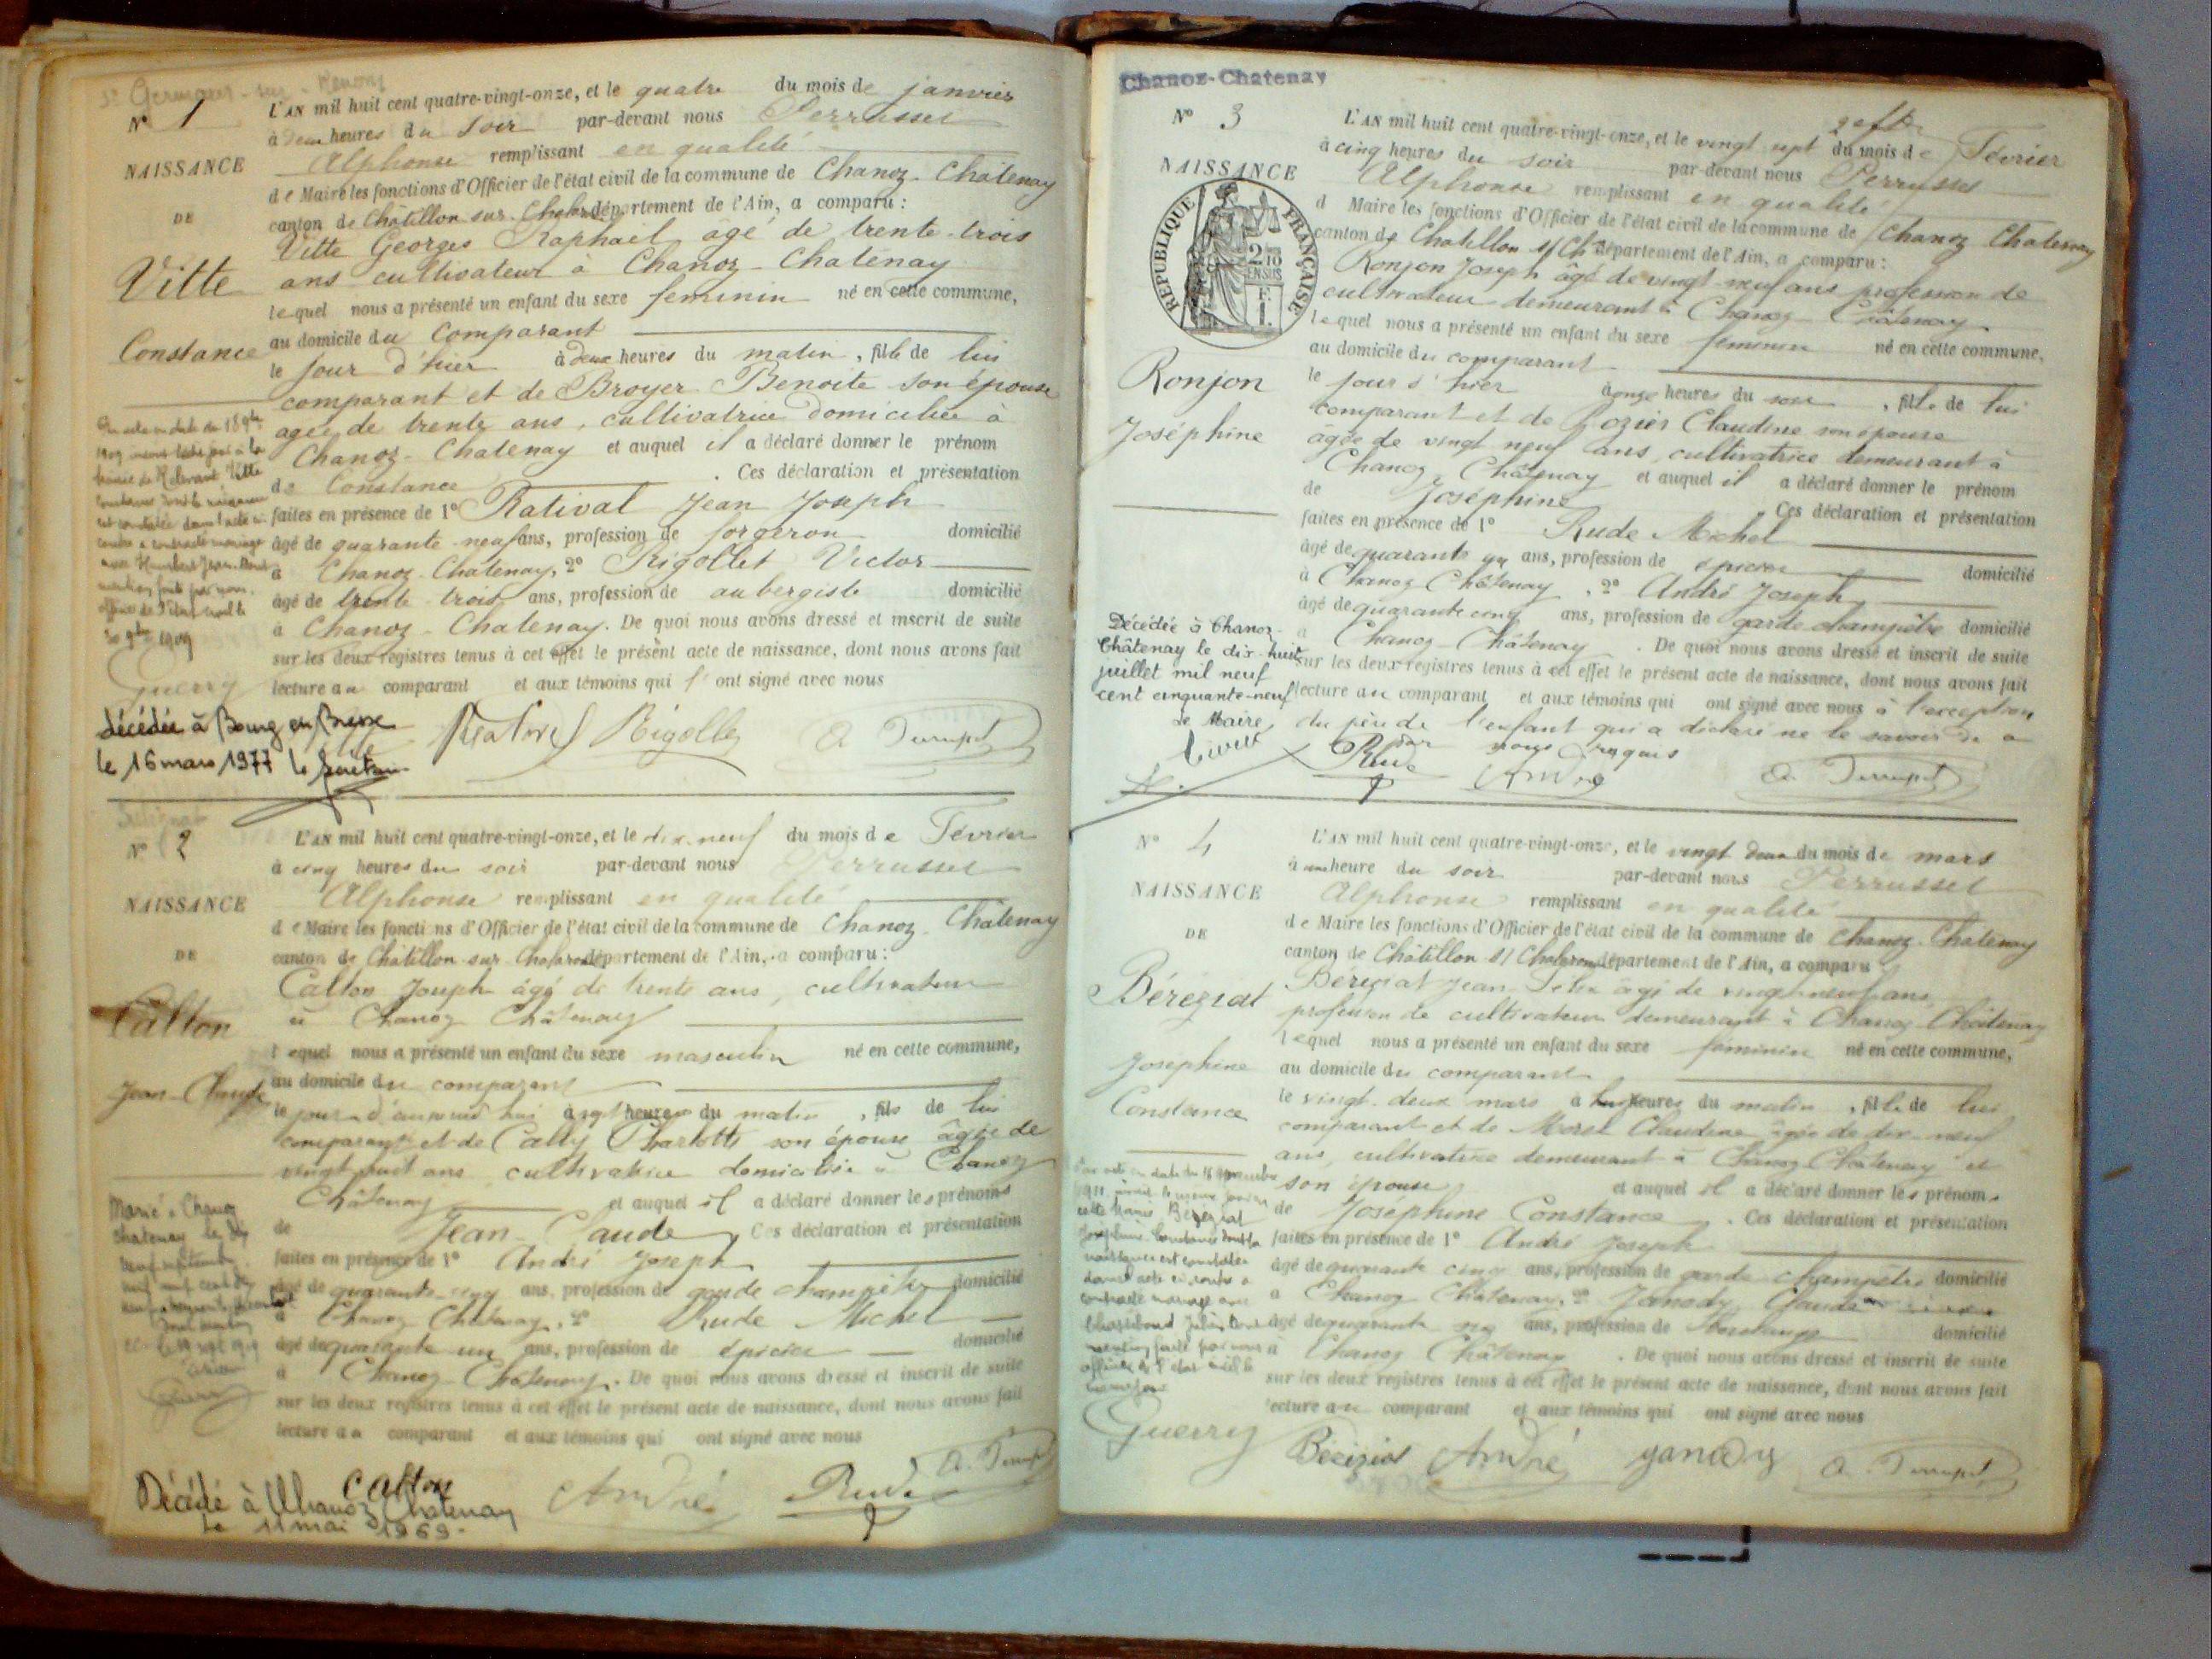 St Germain-sur-Renon
N° 1
NAISSANCE
DE
Vitte
Constance
L'AN mil huit cent quatre-vingt-onze, et le quatre du mois de janvier
à deux heures du soir par-devant nous Perrussel
Alphonse remplissant en qualité
de Maire les fonctions d'Officier de l'état civil de la commune de Chanoz-Chatenay
canton de Châtillon-sur-Chalaronne département de l'Ain, a comparu :
Vitte Georges Raphaël âgé de trente-trois
ans cultivateur à Chanoz-Chatenay
lequel nous a présenté un enfant du sexe feminin né en cette commune,
au domicile du comparant
le jour d'hier à deux heures du matin, fille de lui
comparant et de Broyer Benoite son épouse
agée de trente ans, cultivatrice domiciliée à
Chanoz-Chatenay et auquel il a déclaré donner le prénom
de Constance. Ces déclaration et présentation
faites en présence de 1° Rativat Jean Joseph
âgé de quarante-neuf ans, profession de forgeron domicilié
à Chanoz-Chatenay, 2° Rigollet Victor
âgé de trente-trois ans, profession de aubergiste domicilié
à Chanoz-Chatenay. De quoi nous avons dressé et inscrit de suite
sur les deux registres tenus à cet effet le présent acte de naissance, dont nous avons fait
lecture au comparant et aux témoins qui l' ont signé avec nous
contracté mariage
avec Humbert Jean
mention faite par nous
officier de l'état civil le
1909
Guerry
décédée à Bourg en Bresse
le 16 mars 1977 le
N° 2
NAISSANCE
DE
Catton
Jean-Claude
L'AN mil huit cent quatre-vingt-onze, et le dix-neuf du mois de Février
à cinq heures du soir par-devant nous Perrussel
Alphonse remplissant en qualité
de Maire les fonctions d'Officier de l'état civil de la commune de Chanoz-Châtenay
canton de Châtillon-sur-Chalaronne département de l'Ain, a comparu :
Catton Joseph âgé de trente ans, cultivateur
à Chanoz Châtenay
lequel nous a présenté un enfant du sexe masculin né en cette commune,
au domicile du comparant
le jour d'aujourd'hui à sept heures du matin, fils de lui
comparant et de Cally Charlotte son épouse âgée de
vingt huit ans cultivatrice domiciliée à Chanoz
Châtenay et auquel il a déclaré donner les prénoms
de Jean-Claude Ces déclaration et présentation
faites en présence de 1° André Joseph
âgé de quarante-cinq ans, profession de garde champêtre domicilié
à Chanoz Châtenay, 2° Rude Michel
âgé de quarante un ans, profession de épicier domicilié
à Chanoz-Châtenay. De quoi nous avons dressé et inscrit de suite
sur les deux registres tenus à cet effet le présent acte de naissance, dont nous avons fait
lecture au comparant et aux témoins qui ont signé avec nous
Marié à Chanoz
Chatenay le dix
neuf septembre
mil neuf cent dix
Guerry
Catton André Rude
Décédé à Chanoz Chatenay
le 11 mai 1969.
Chanoz-Chatenay
N° 3
NAISSANCE
REPUBLIQUE FRANÇAISE
Ronjon
Joséphine
L'AN mil huit cent quatre-vingt-onze, et le vingt sept du mois de Février
à cinq heures du soir par-devant nous Perrussel
Alphonse remplissant en qualité
d Maire les fonctions d'Officier de l'état civil de la commune de Chanoz Chatenay
canton de Chatillon s/ Ch département de l'Ain, a comparu :
Ronjon Joseph âgé de vingt-neuf ans profession de
cultivateur demeurant à Chanoz Châtenay
lequel nous a présenté un enfant du sexe feminin né en cette commune,
au domicile du comparant
le jour d'hier à onze heures du soir, fille de lui
comparant et de Rozier Claudine son épouse
âgée de vingt neuf ans, cultivatrice demeurant à
Chanoz Châtenay et auquel il a déclaré donner le prénom
de Joséphine Ces déclaration et présentation
faites en présence de 1° Rude Michel
âgé de quarante un ans, profession de épicier domicilié
à Chanoz Châtenay, 2° André Joseph
âgé de quarante cinq ans, profession de garde champêtre domicilié
à Chanoz-Châtenay. De quoi nous avons dressé et inscrit de suite
sur les deux registres tenus à cet effet le présent acte de naissance, dont nous avons fait
lecture au comparant et aux témoins qui ont signé avec nous à l'exception
du père de l'enfant qui a déclaré ne le savoir de ce
par nous requis
Décédée à Chanoz-
Châtenay le dix-huit
juillet mil neuf
cent cinquante-neuf
Le Maire,
Rude André
N° 4
NAISSANCE
DE
Béréziat
Joséphine
Constance
L'AN mil huit cent quatre-vingt-onze, et le vingt deux du mois de mars
à une heure du soir par-devant nous Perrussel
Alphonse remplissant en qualité
de Maire les fonctions d'Officier de l'état civil de la commune de Chanoz-Chatenay
canton de Châtillon s/ Chalaronne département de l'Ain, a comparu
Béréziat Jean âgé de vingt-neuf ans,
profession de cultivateur demeurant à Chanoz-Châtenay
lequel nous a présenté un enfant du sexe féminin né en cette commune,
au domicile du comparant
le vingt-deux mars à heures du matin, fille de lui
comparant et de Morel Claudine âgée de dix-neuf
ans, cultivatrice demeurant à Chanoz Châtenay et
son épouse et auquel il a déclaré donner les prénoms
de Joséphine Constance. Ces déclaration et présentation
faites en présence de 1° André Joseph
âgé de quarante cinq ans, profession de garde-champêtre domicilié
à Chanoz Châtenay, 2° Janody Claude
âgé de quarante ans, profession de domicilié
à Chanoz Châtenay. De quoi nous avons dressé et inscrit de suite
sur les deux registres tenus à cet effet le présent acte de naissance, dont nous avons fait
lecture au comparant et aux témoins qui ont signé avec nous
Guerry Béréziat André Janody